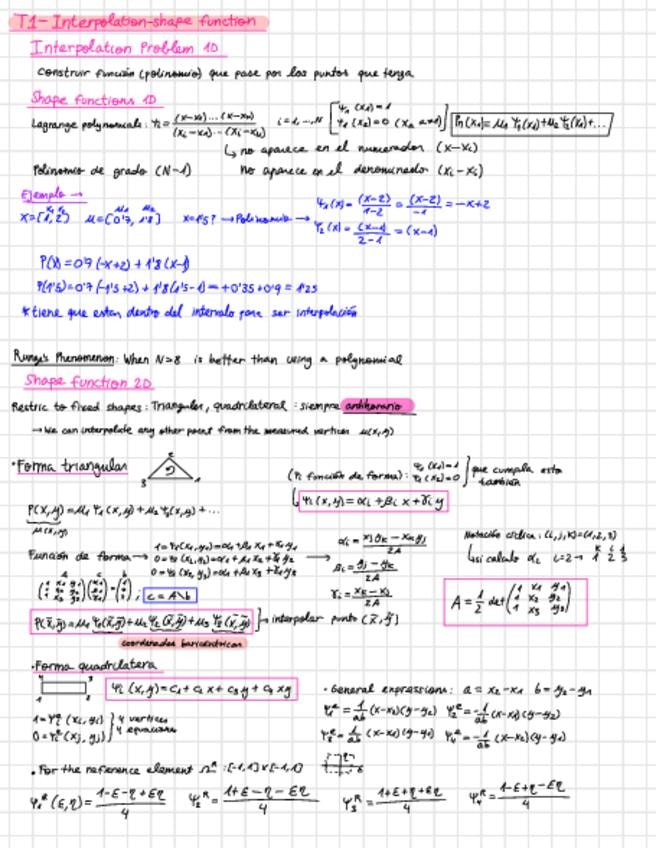 T.1- Interpolation-shape function
Interpolation Problem 1D
Construir función (polinomio) que pase por los puntos que tenga
Shape functions 1D
Lagrange polynomials: Ψi = (x-x1)...(x-xN) / (xi-x1)...(xi-xN) i=1,...,N [Ψ1(x1)=1 Ψ1(x2)=0 Pn(x)=μ1Ψ1(x)+μ2Ψ2(x)+...
↳ no aparece en el numerador (x-xi)
Polinomio de grado (N-1) No aparece en el denominador (xi-xi)
Ejemplo →
x=[1,2] μ=[0'7, 1'8] x=1'5? → Polinomio → Ψ1(x)=(x-2)/(1-2)=(x-2)/-1=-x+2
Ψ2(x)=(x-1)/(2-1)=(x-1)
P(x)=0'7(-x+2)+1'8(x-1)
P(1'5)=0'7(-1'5+2)+1'8(1'5-1)=+0'35+0'9=1'25
*tiene que estar dentro del intervalo para ser interpolación
Runge's Phenomenon: When N>8 is better than using a polynomial
Shape function 2D
Restric to fixed shapes: Triangular, quadrilateral: siempre antihorario
→ We can interpolate any other point from the measured vertices μ(x,y)
·Forma triangular 2 3 1 (Ψi función de forma): ] que cumpla esto también
↳ Ψi(x,y)=αi+βi x+γi y
P(x,y)=μ1Ψ1(x,y)+μ2Ψ2(x,y)+...
μ(x,y)
Función de forma → 1=Ψ1(x1,y1)=α1+β1x1+γ1y1 → αi=(xjyk-xkyj)/2A Notación cíclica: (i,j,k)=(1,2,3)
0=Ψ1(x2,y2)=α1+β1x2+γ1y2 βi=(yj-yk)/2A ↳ si calculo α2 i=2→
0=Ψ1(x3,y3)=α1+β1x3+γ1y3 γi=(xk-xj)/2A
; c=A\b A=1/2 det(1 x1 y1 1 x2 y2 1 x3 y3)
P(x̄,ȳ)=μ1Ψ1(x̄,ȳ)+μ2Ψ2(x̄,ȳ)+μ3Ψ3(x̄,ȳ) } → interpolar punto (x̄,ȳ)
coordenadas baricéntricas
·Forma quadrilatera
Ψi(x,y)=c1+c2x+c3y+c4xy · General expressions: a=x2-x1 b=y2-y1
1=Ψi(xi,yi) } 4 vertices Ψ1=1/ab(x-x2)(y-y2) Ψ2=-1/ab(x-x1)(y-y2)
0=Ψi(xj,yj) 4 equacions Ψ3=1/ab(x-x1)(y-y1) Ψ4=-1/ab(x-x2)(y-y1)
· For the reference element Ω^R: [-1,1]x[-1,1]
Ψ1^R(ξ,η)=(1-ξ-η+ξη)/4 Ψ2^R=(1+ξ-η-ξη)/4 Ψ3^R=(1+ξ+η+ξη)/4 Ψ4^R=(1-ξ+η-ξη)/4